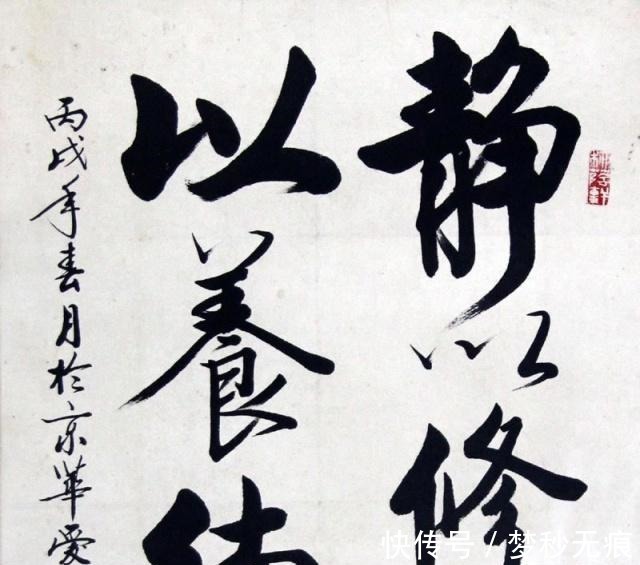 静以修
以養
丙戌年春月於京華愛
快传号 / 梦秒无痕